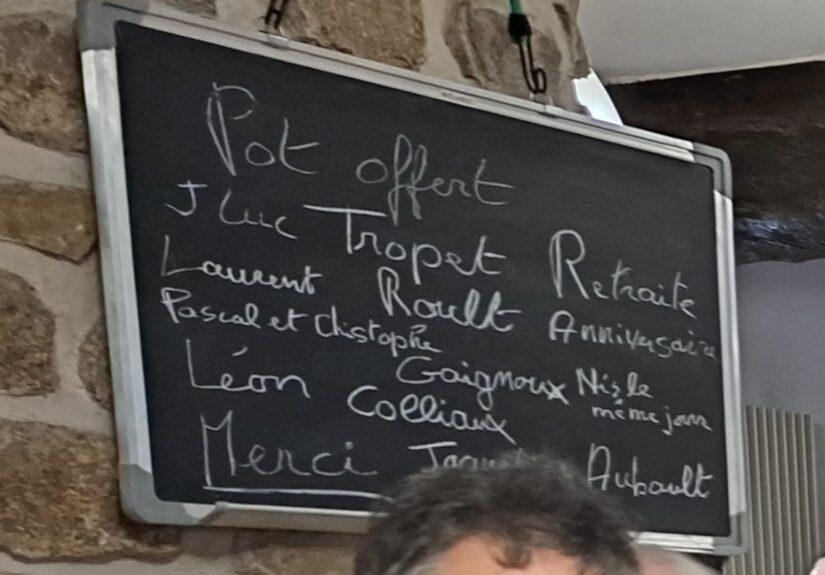 Pot offert
J Luc Tropet Retraite
Laurent Roult Anniversaire
Pascal et Chistophe Gaignoux Nés le même jour
Léon Colliaux
Merci Aubault